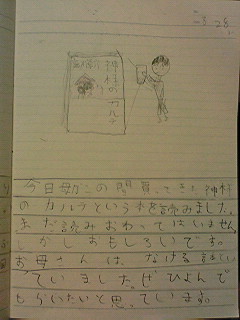 8 28
神様の
カルテ
今日母がこの間買ってきた神様
のカルテという本を読みました。
まだ読みおわってはいません。
しかしおもしろいです。
お母さんは、なける話しい
っていました。ぜひよんで
もらいたいと思っています。